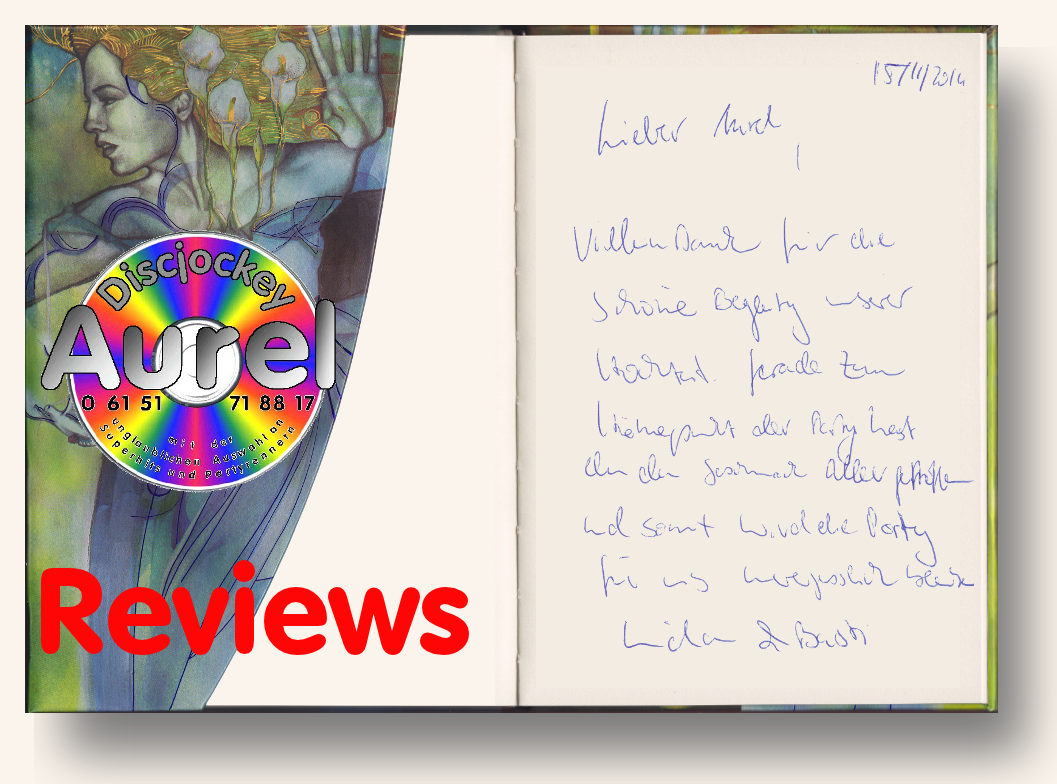 Discjockey
Aurel
0 61 51 71 88 17
mit der
unglaublichen Auswahl an
Superhits und Partyrennern
Reviews
15/11/2014
Lieber Aurel
!
Vielen Dank für die
schöne Begleitung unserer
Hochzeit. Gerade zum
Höhepunkt der Party hast
du den Geschmack aller getroffen
und somit wird die Party
für uns unvergesslich bleiben
& Basti